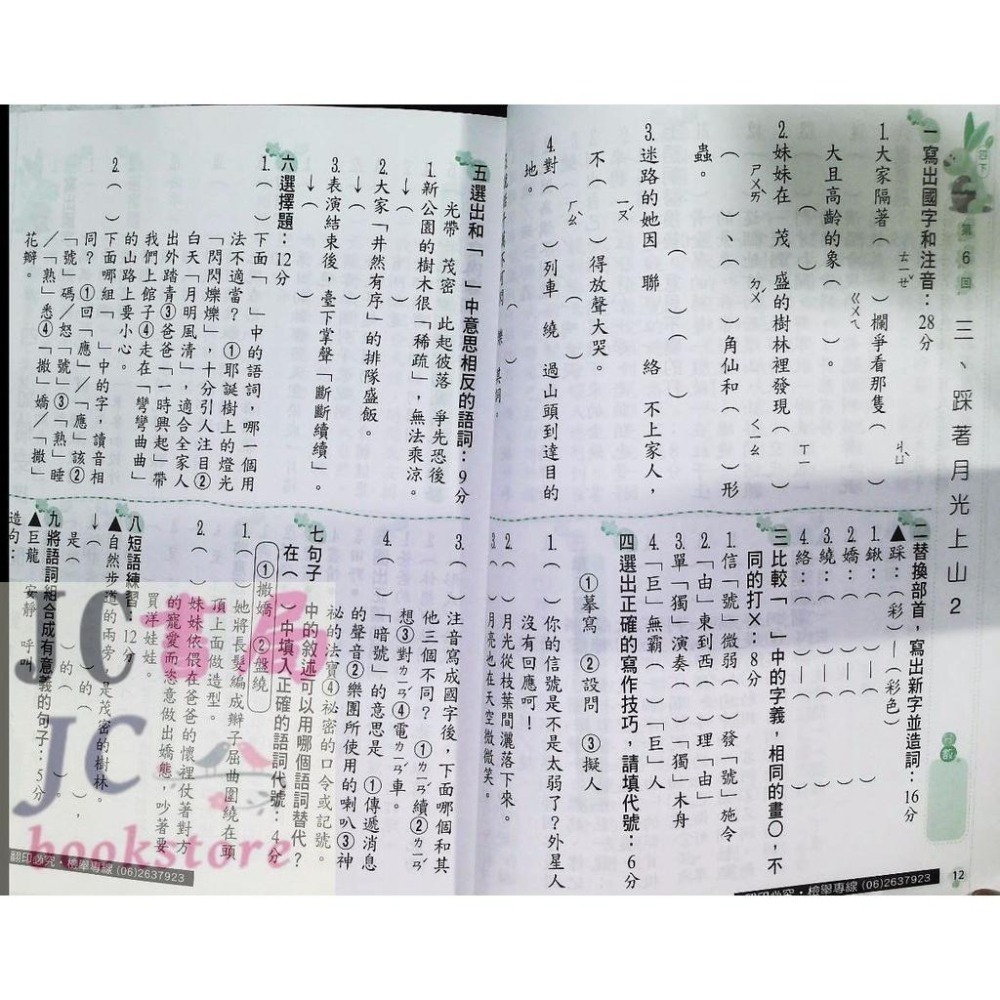 四下
第6回
三、踩著月光上山 2
一寫出國字和注音：28分
1.大家隔著（ ）欄爭看那隻（ ）
ㄓㄚˋ
大且高齡的象（ ）。
ㄍㄨㄟ
2.妹妹在 茂 盛的樹林裡發現（ ）
ㄕㄨˊ
ㄒㄧ
（ ）、（ ）角仙和（ ）形
蟲。
3.迷路的她因 聯 絡 不上家人，
不（ ）得放聲大哭。
4.對（ ）列車 繞 過山頭到達目的
地。
二替換部首，寫出新字並造詞：16分
▲踩：（彩）—（彩色）
1.鍬：（ ）—（ ）
2.嬌：（ ）—（ ）
3.繞：（ ）—（ ）
4.絡：（ ）—（ ）
三比較「 」中的字義，相同的畫○，不
同的打×：8分
1.信「號」微弱（ ）發「號」施令
2.「由」東到西（ ）理「由」
3.單「獨」演奏（ ）「獨」木舟
4.「巨」無霸（ ）「巨」人
四選出正確的寫作技巧，請填代號：6分
①摹寫 ②設問 ③擬人
1.（ ）你的信號是不是太弱了？外星人
沒有回應呵！
2.（ ）月光從枝葉間灑落下來。
3.（ ）月亮也在天空微微笑。
12
五選出和「 」中意思相反的語詞：9分
光帶 茂密 此起彼落 爭先恐後
1.新公園的樹木很「稀疏」，無法乘涼。
↓（ ）
2.大家「井然有序」的排隊盛飯。
↓（ ）
3.表演結束後，臺下掌聲「斷斷續續」。
↓（ ）
六選擇題：12分
1.（ ）下面「 」中的語詞，哪一個用
法不適當？ ①耶誕樹上的燈光
「閃閃爍爍」，十分引人注目②
白天「月明風清」，適合全家人
出外踏青③爸爸「一時興起」帶
我們上館子④走在「彎彎曲曲」
的山路上要小心。
2.（ ）下面哪一組「 」中的字，讀音相
同？ ①回「應」／「應」該②
「號」碼／怒「號」③「熟」睡
／「熟」悉④「撒」嬌／「撒」
花瓣。
3.（ ）注音寫成國字後，下面哪個和其
他三個不同？ ①ㄌㄧㄢˊ續②ㄌㄧㄢˊ
想③對ㄌㄧㄢˊ④電ㄌㄧㄢˊ車。
4.（ ）「暗號」的意思是 ①傳遞消息
的聲音②樂團所使用的喇叭③神
祕的法寶④祕密的口令或記號。
七句子 中的敘述可以用哪個語詞替代？
在（ ）中填入正確的語詞代號：4分
①撒嬌 ②盤繞
1.（ ）她將長髮編成辮子屈曲圍繞在頭
頂上面做造型。
2.（ ）妹妹依偎在爸爸的懷裡仗著對方
的寵愛而恣意做出嬌態，吵著要
買洋娃娃。
八短語練習：12分
▲自然步道的兩旁，是茂密的樹林。
↓（ ）的（ ），
是（ ）的（ ）。
九將語詞組合成有意義的句子：5分
▲巨龍 安靜 呼叫
造句：
翻印必究・檢舉專線 (06)2637923
翻印必究・檢舉專線 (06)2637923
JC書局
JC
bookstore